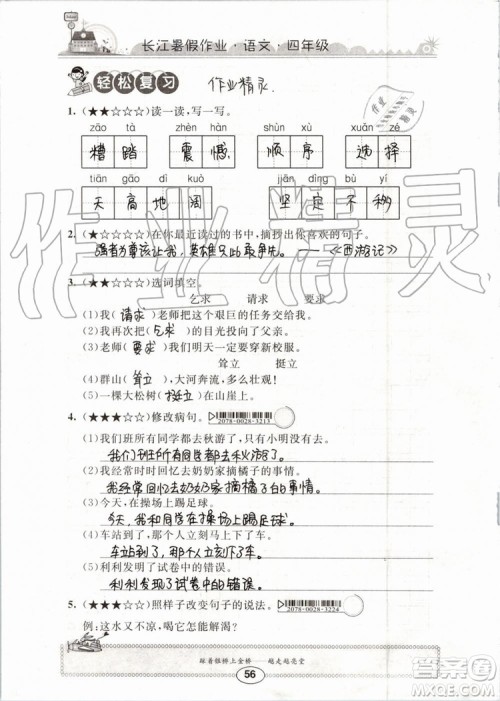 长江暑假作业·语文·四年级
轻松复习 作业精灵.
1.(★★☆☆☆)读一读,写一写。
zāo tà zhèn hàn shùn xù xuǎn zé
糟 踏 震 憾 顺 序 选 择
tiān gāo dì kuò jiān dìng bù yí
天 高 地 阔 坚 定 不 移
2.(★☆☆☆☆)在你最近读过的书中,摘抄出你喜欢的句子。
强者为尊该让我,英雄只此敢争先。——《西游记》
3.(★★★☆☆)选词填空。
乞求 请求 要求
(1)我(请求)老师把这个艰巨的任务交给我。
(2)我再次把(乞求)的目光投向了父亲。
(3)老师(要求)我们明天一定要穿新校服。
耸立 挺立
(4)群山(耸立),大河奔流,多么壮观!
(5)一棵大松树(挺立)在山崖上。
4.(★★★☆☆)修改病句。
2078-0028-3213
(1)我们班所有同学都去秋游了,只有小明没去。
我们班所有同学都去秋游了。
(2)我经常时时回忆去奶奶家摘橘子的事情。
我经常回忆去奶奶家摘橘子的事情。
(3)今天,在操场上踢足球。
今天,我和同学在操场上踢足球。
(4)车站到了,那个人立刻下车。
车站到了,那个人立刻下车了。
(5)利利发明了试卷中的错误。
利利发现了试卷中的错误。
5.(★★★☆☆)照样子改变句子的说法。
2078-0028-3224
例:这水又不凉,喝它怎能解渴?
踩着银桥上金桥 越走越亮堂
56
作业精灵
答案圈
MXQE.COM